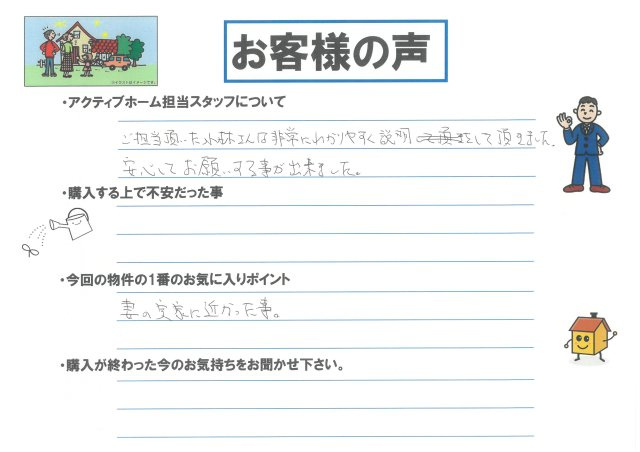 お客様の声
※イラストはイメージです。
・アクティブホーム担当スタッフについて
ご担当頂いた小林さんは非常にわかりやすく説明をして頂きました。
安心してお願いする事が出来ました。
・購入する上で不安だった事
・今回の物件の1番のお気に入りポイント
妻の実家に近かった事。
・購入が終わった今のお気持ちをお聞かせ下さい。